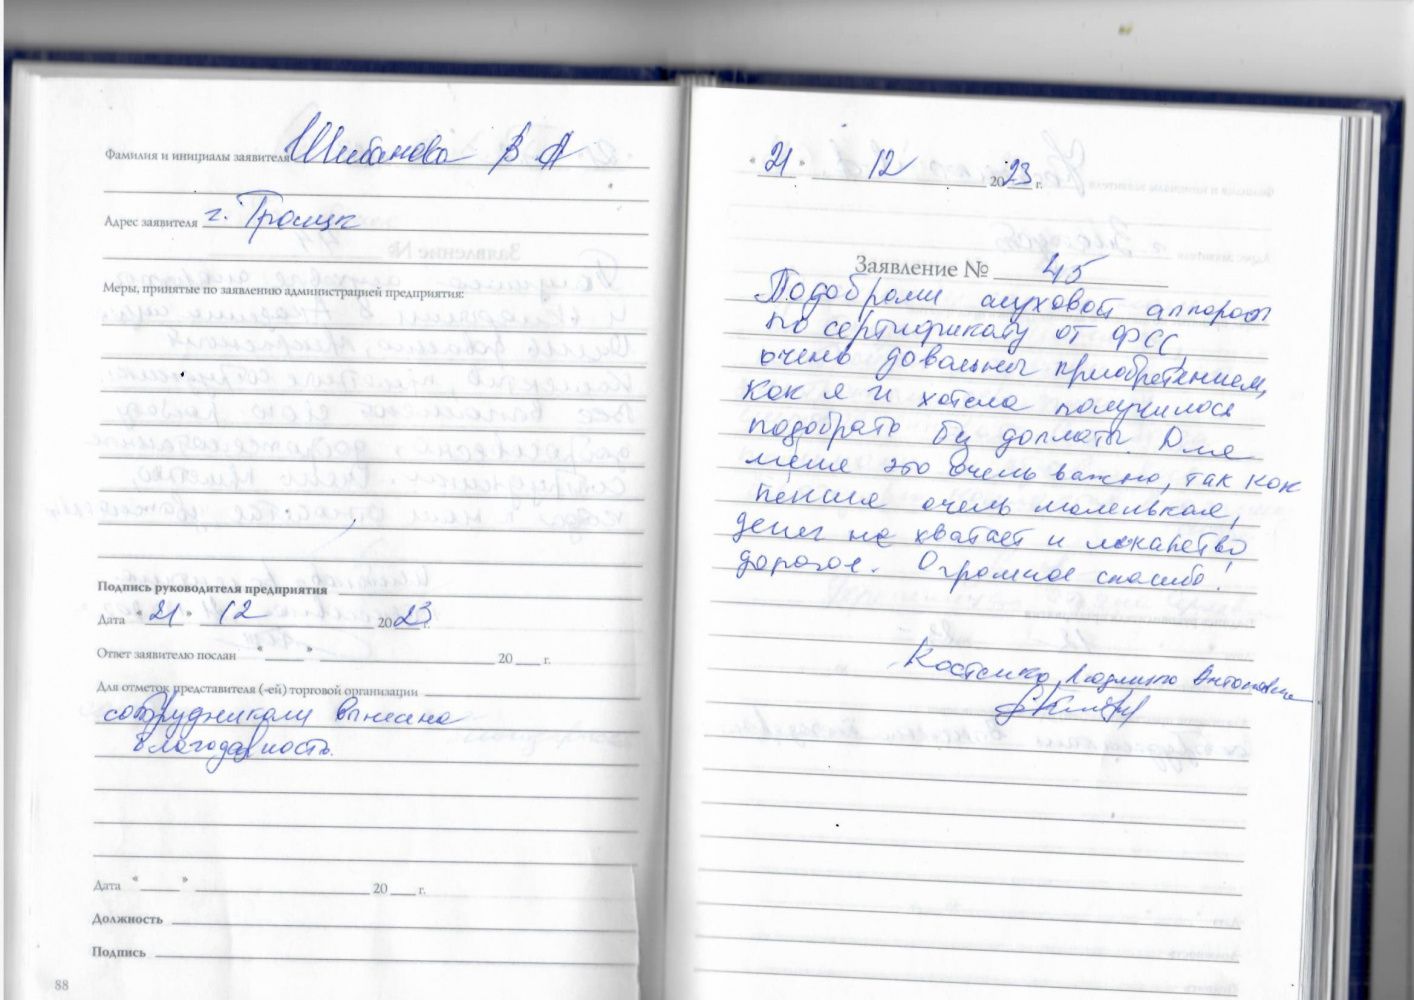 Фамилия и инициалы заявителя Шибанова В А
Адрес заявителя г. Троицк
Меры, принятые по заявлению администрацией предприятия:
Подпись руководителя предприятия
Дата "21" 12 2023 г.
Ответ заявителю послан " " 20 г.
Для отметок представителя (-ей) торговой организации
сотрудникам вынесена
благодарность.
Дата " " 20 г.
Должность
Подпись
88
"21" 12 2023 г.
Заявление № 45
Подобрали слуховой аппарат
по сертификату от ФСС,
очень довольны приобретением,
как я и хотела получилось
подобрать без доплаты. Для
меня это очень важно, так как
пенсия очень маленькая,
денег не хватает и лекарство
дорогое. Огромное спасибо!
Людмила Антоновна